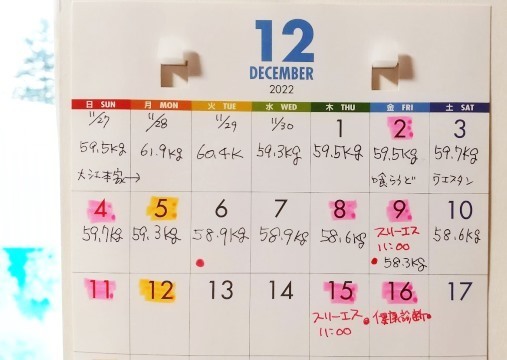 12
DECEMBER
2022
日 SUN 月 MON 火 TUE 水 WED 木 THU 金 FRI 土 SAT
11/27 11/28 11/29 11/30 1 2 3
59.5kg 61.9kg 60.4K 59.3kg 59.5kg 59.5kg 59.7kg
大江本家→ 喰うらど ウエスタン
4 5 6 7 8 9 10
59.7kg 59.3kg 58.9kg 58.9kg 58.6kg スリーエス 58.6kg
11:00
58.3kg
11 12 13 14 15 16 17
スリーエス 健康診断
11:00